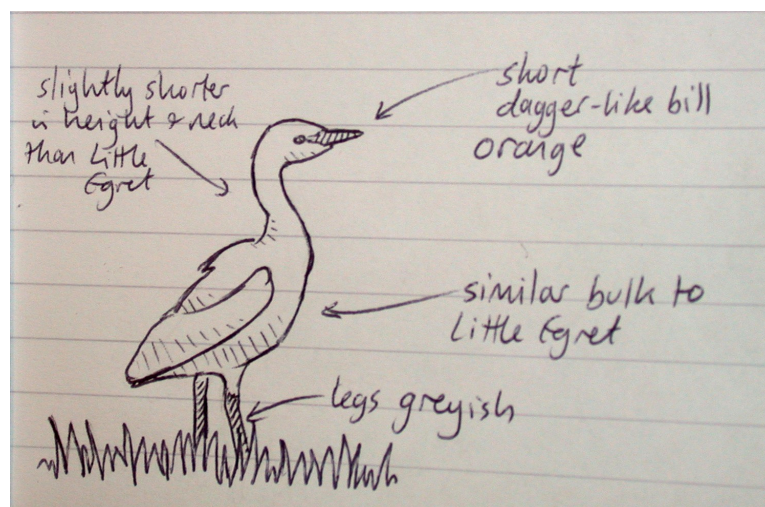 slightly shorter
in height & neck
than Little
Egret
short
dagger-like bill
orange
similar bulk to
Little Egret
legs greyish